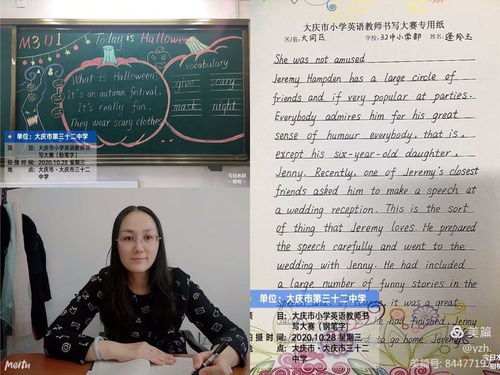 M3U1
Today is Halloween
What is Halloween,
It's an autumn festival.
It's really fun.
They wear scary clothes
Vocabulary
give scary
mark night
单位：大庆市第三十二中学
项目：大庆市小学英语教师书
写大赛（粉笔字）
拍摄时间：2020.10.28 星期三
地点：大庆市·大庆市三十二
中学
今日水印
相机
Meitu
大庆市小学英语教师书写大赛专用纸
区/县：大同区 学校：32中小学部 姓名：
She was not amused
Jeremy Hampden has a large circle of
friends and if very popular at parties.
Everybody admires him for his great
sense of humour everybody, that is,
except his six-year-old daughter,
Jenny. Recently, one of Jeremy's closest
friends asked him to make a speech at
a wedding reception. This is the sort
of thing that Jeremy loves. He prepared
the speech carefully and went to the
wedding with Jenny. He had included
a large number of funny stories in the
it was a great
he had finished, Jenny
to go home. Jeremy
单位：大庆市第三十二中学
项目：大庆市小学英语教师书
写大赛（钢笔字）
拍摄时间：2020.10.28 星期三
地点：大庆市·大庆市三十二
中学
美篇
@yzh
美篇号：8447719